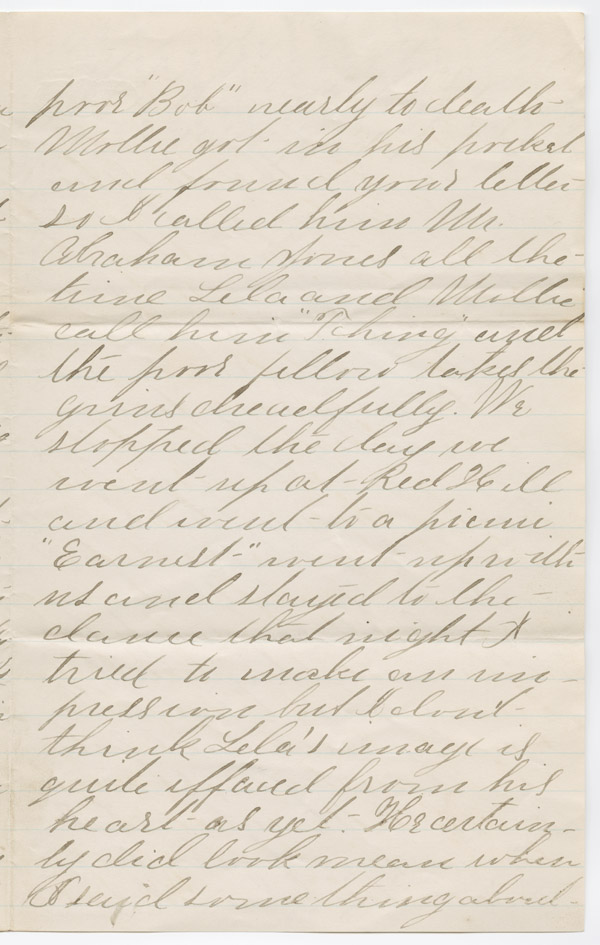 poor "Bob" nearly to death
Mollie got in his pocket
and found your letter
so I called him Mr.
Abraham Jones all the
time Lela and Mollie
call him "Tching" and
the poor fellow takes the
grins dreadfully. We
stopped the day we
went up at Red Hill
and went to a picnic
"Earnest" went up with
us and stayed to the
dance that night I
tried to make an im-
pression but I don't
think Lela's image is
quite effaced from his
heart as yet. He certain-
ly did look mean when
I said something about